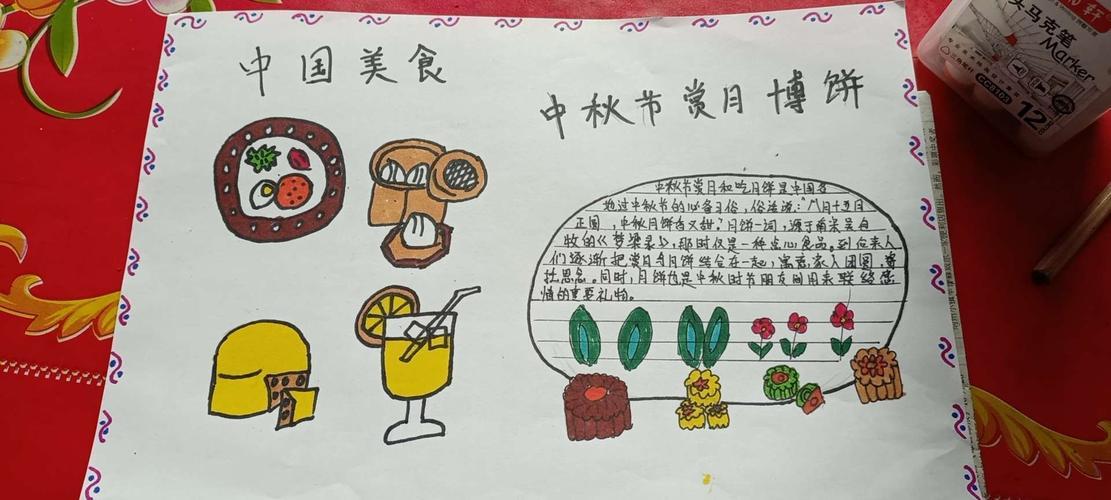 中国美食
中秋节赏月博饼
中秋节赏月和吃月饼是中国各
地过中秋节的必备习俗，俗话说：“八月十五月
正圆，中秋月饼香又甜”。月饼一词，源于南宋吴自
牧的《梦梁录》，那时仅是一种点心食品。到后来人
们逐渐把赏月与月饼结合在一起，寓意家人团圆，寄
托思念。同时，月饼也是中秋时节朋友间用来联络感
情的重要礼物。
头马克笔
Marker
12